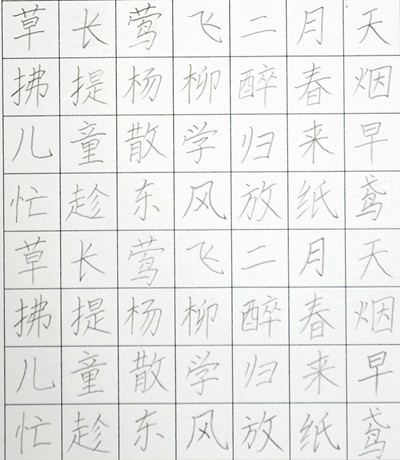 草长莺飞二月天
拂提杨柳醉春烟
儿童散学归来早
忙趁东风放纸鸢
草长莺飞二月天
拂提杨柳醉春烟
儿童散学归来早
忙趁东风放纸鸢